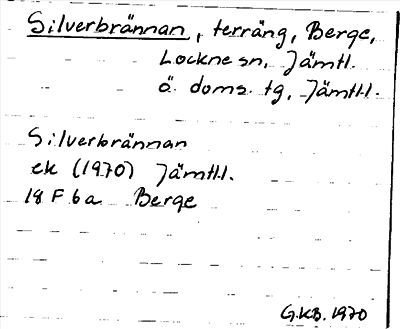 Silverbrännan, terräng, Berge,
Lockne sn, Jämtl.
ö. doms. tg, Jämtl.l.
Silverbrännan
ek (1970) Jämtl.l.
18 F 6 a Berge
G.K.B. 1970